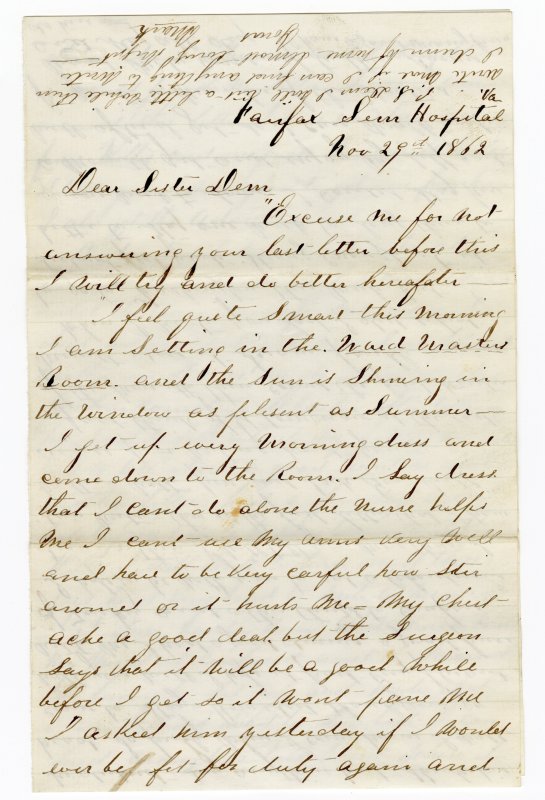 Va
Fairfax Sem Hospital
Nov 29th 1862
Dear Sister Dem
"Excuse me for not
answering your last letter before this
I will try and do better hereafter —
"I feel quite Smart this Morning
I am Setting in the. Ward Masters
Room. and the Sun is Shineing in
the Window as plesent as Summer —
I get up every Morning dress and
come down to the Room. I Say dress
that I cant do alone the Nurse helps
me I cant use My arms very Well
and have to be very carful how Stir
around or it hurts Me = My Chest
ache a good deal. but the Surgeon
Says that it Will be a good While
before I get so it Wont pane Me
I asked him yesterday if I Would
ever be fit for duty again and
write more if I can find anything to write
Yours
Frank